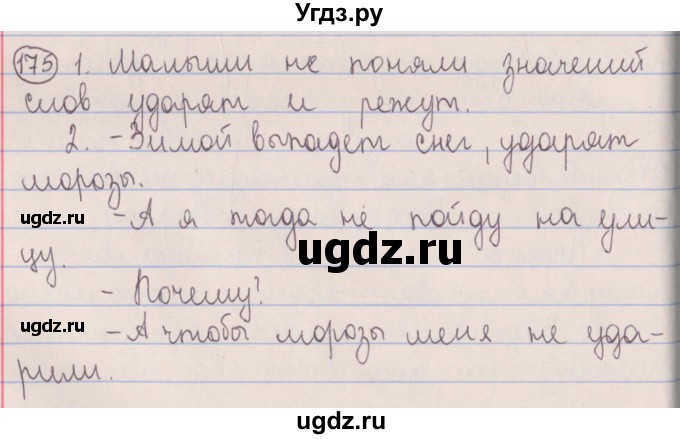 Угдз.ру
175 1. Малыши не поняли значений
слов ударят и режут.
2. -Зимой выпадет снег, ударят
морозы.
ugdz.ru
-А я тогда не пойду на ули-
ugdz.ru
цу.
-Почему?
ugdz.ru
-А чтобы морозы меня не уда-
рили.
ugdz.ru